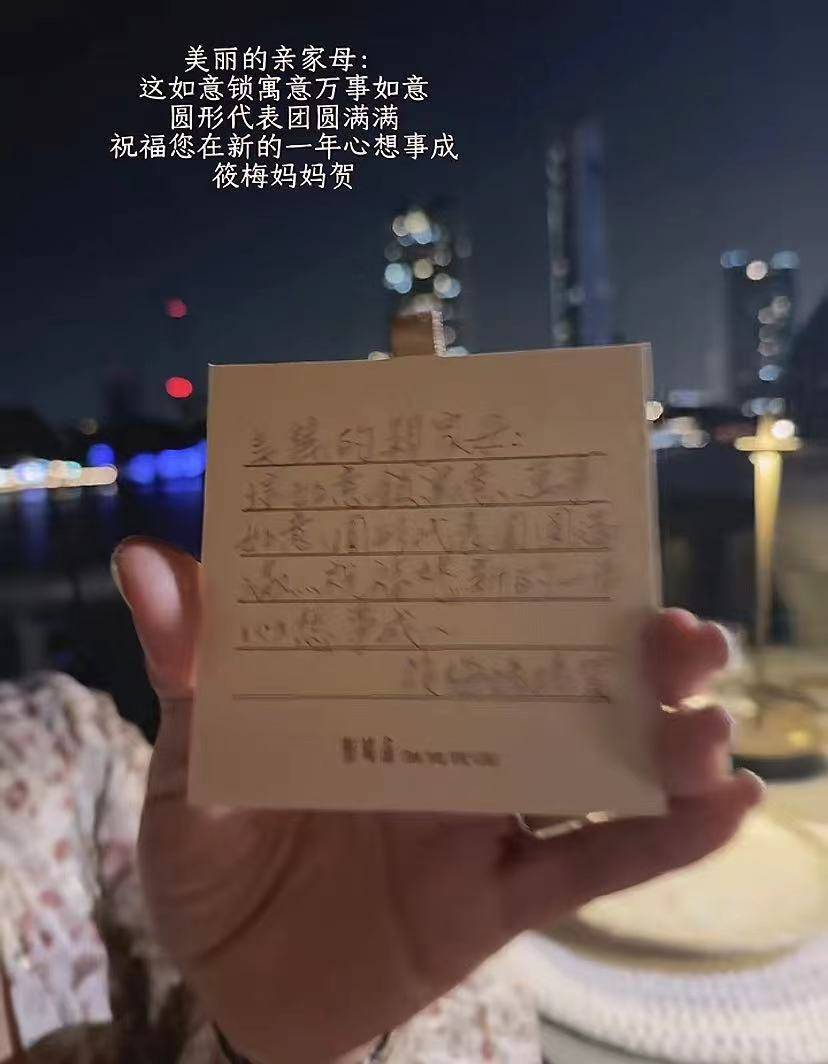 美丽的亲家母:
这如意锁寓意万事如意
圆形代表团圆满满
祝福您在新的一年心想事成
筱梅妈妈贺
美丽的亲家母:
这如意锁寓意万事
如意圆形代表团圆满
满
心想事成